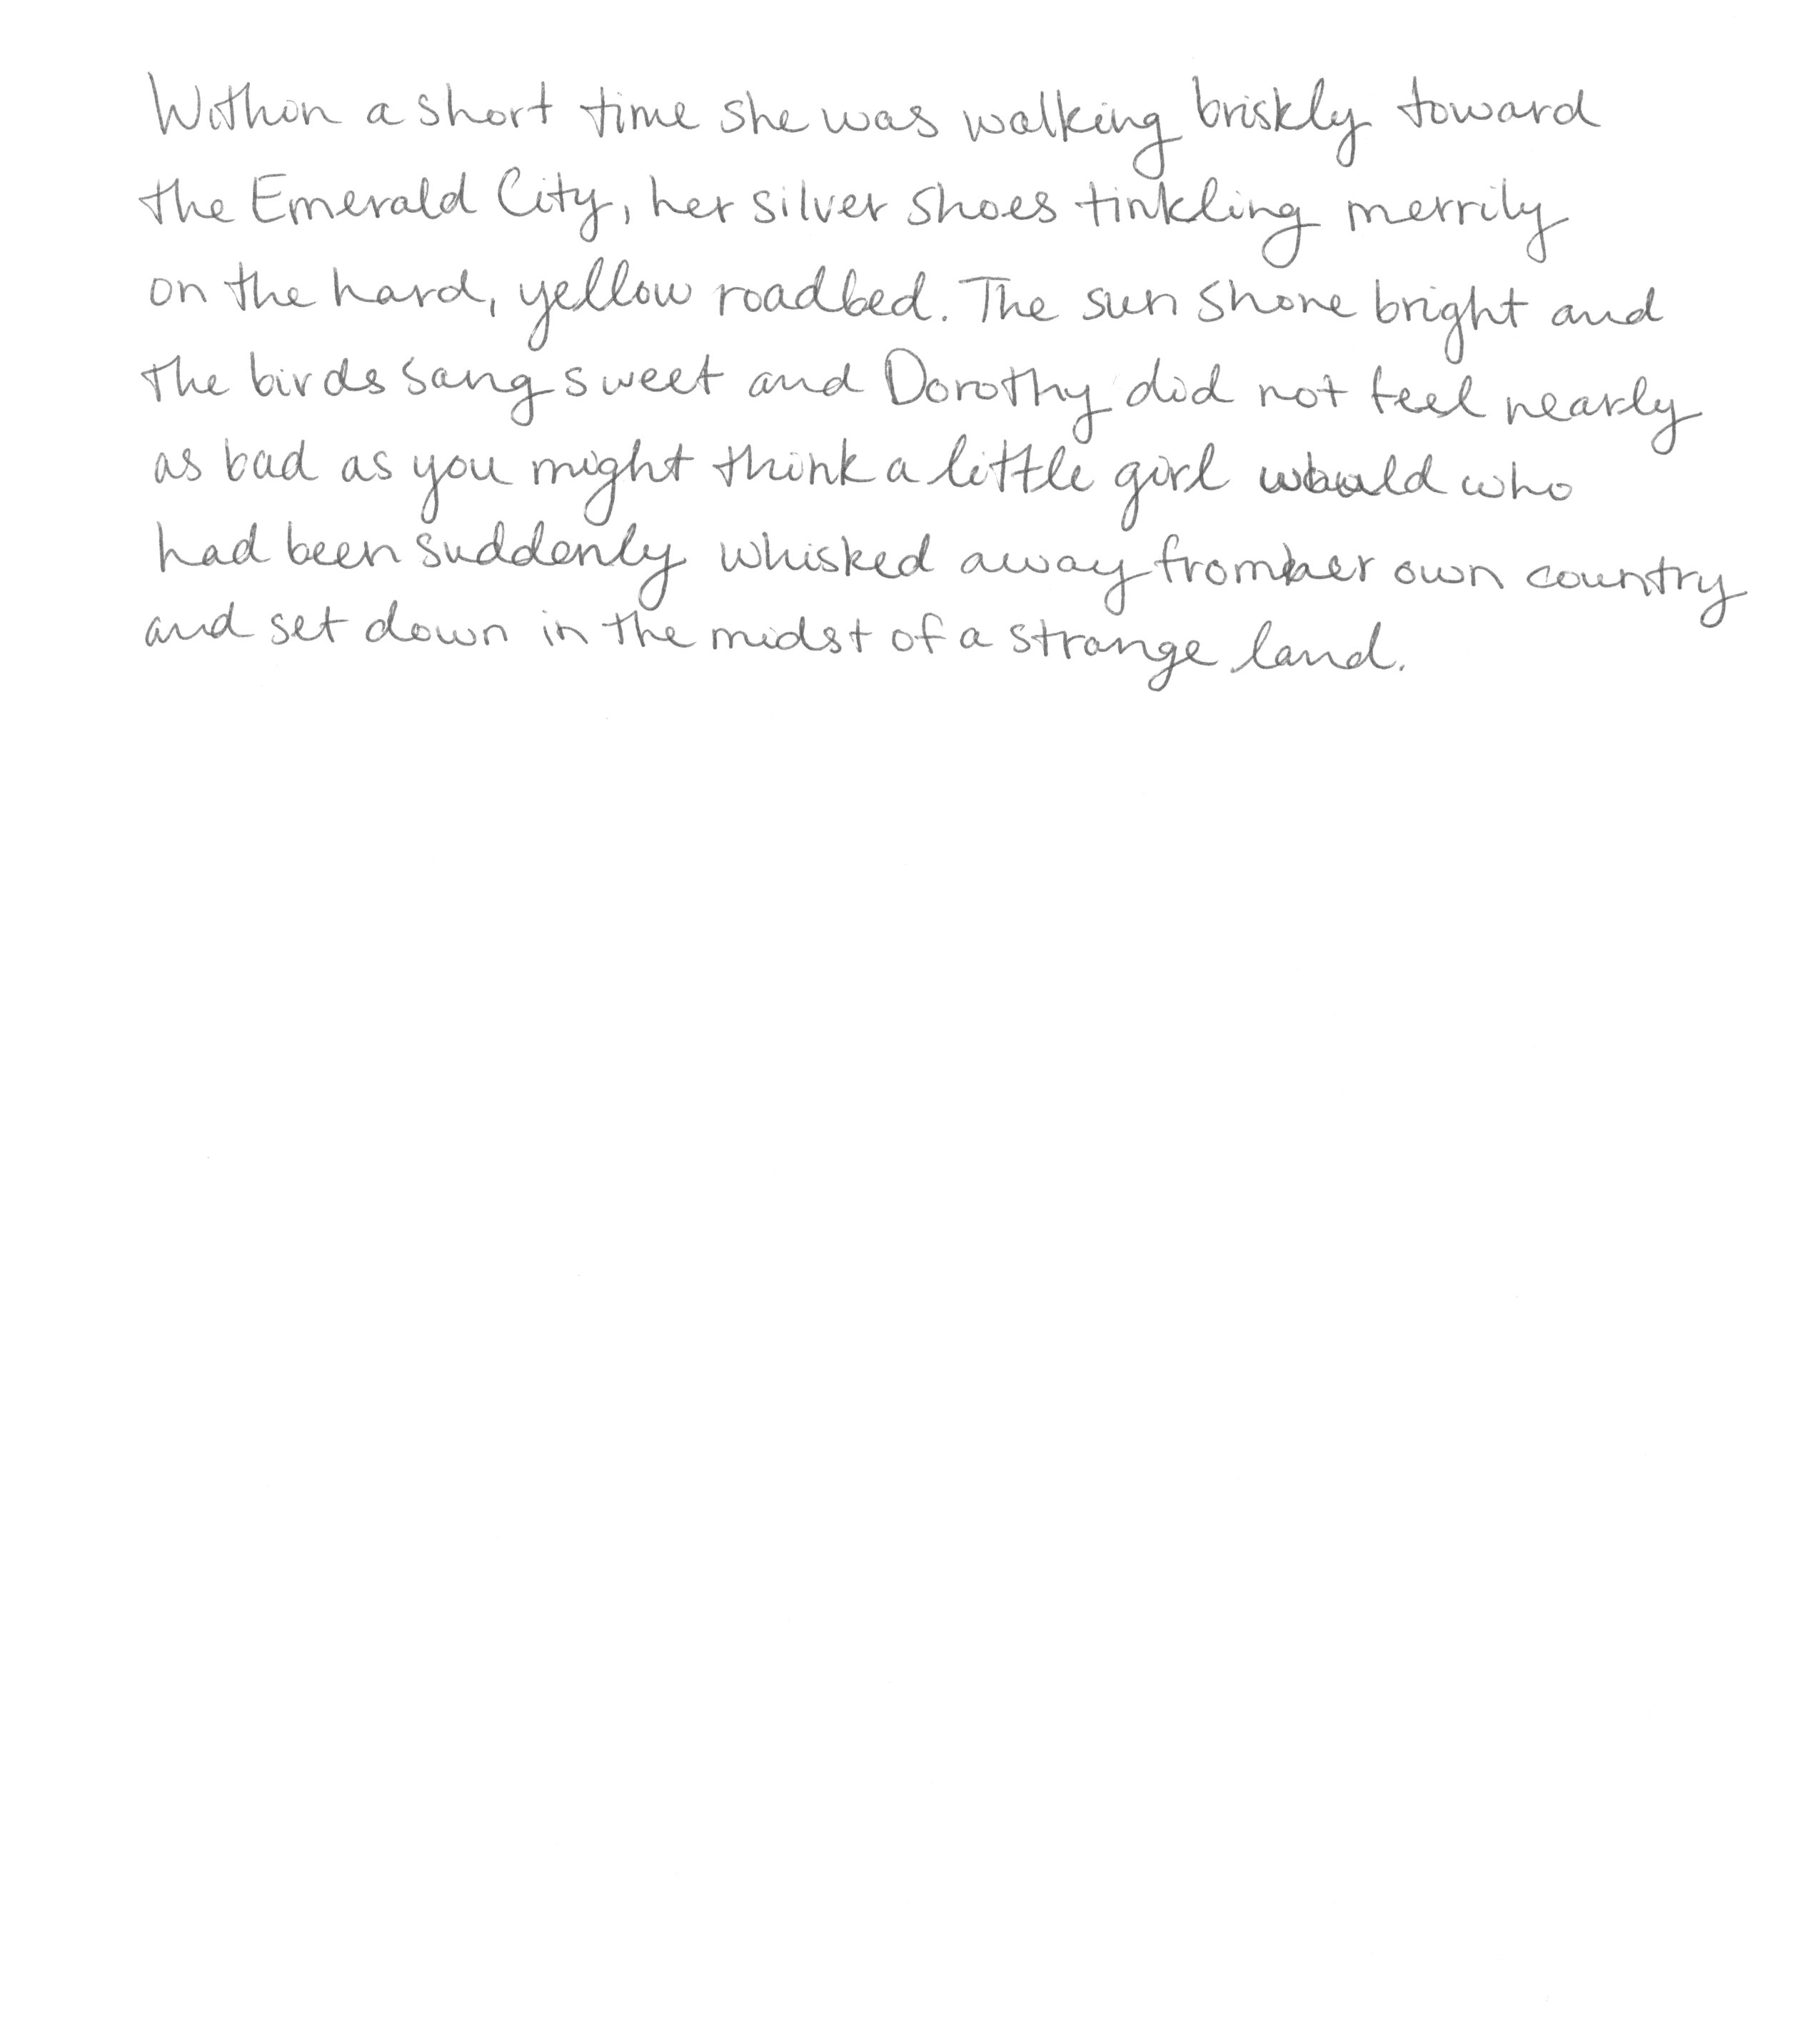 Within a short time she was walking briskly toward
the Emerald City, her silver shoes tinkling merrily
on the hard, yellow roadbed. The sun shone bright and
the birds sang sweet and Dorothy did not feel nearly
as bad as you might think a little girl would who
had been suddenly whisked away from her own country
and set down in the midst of a strange land.